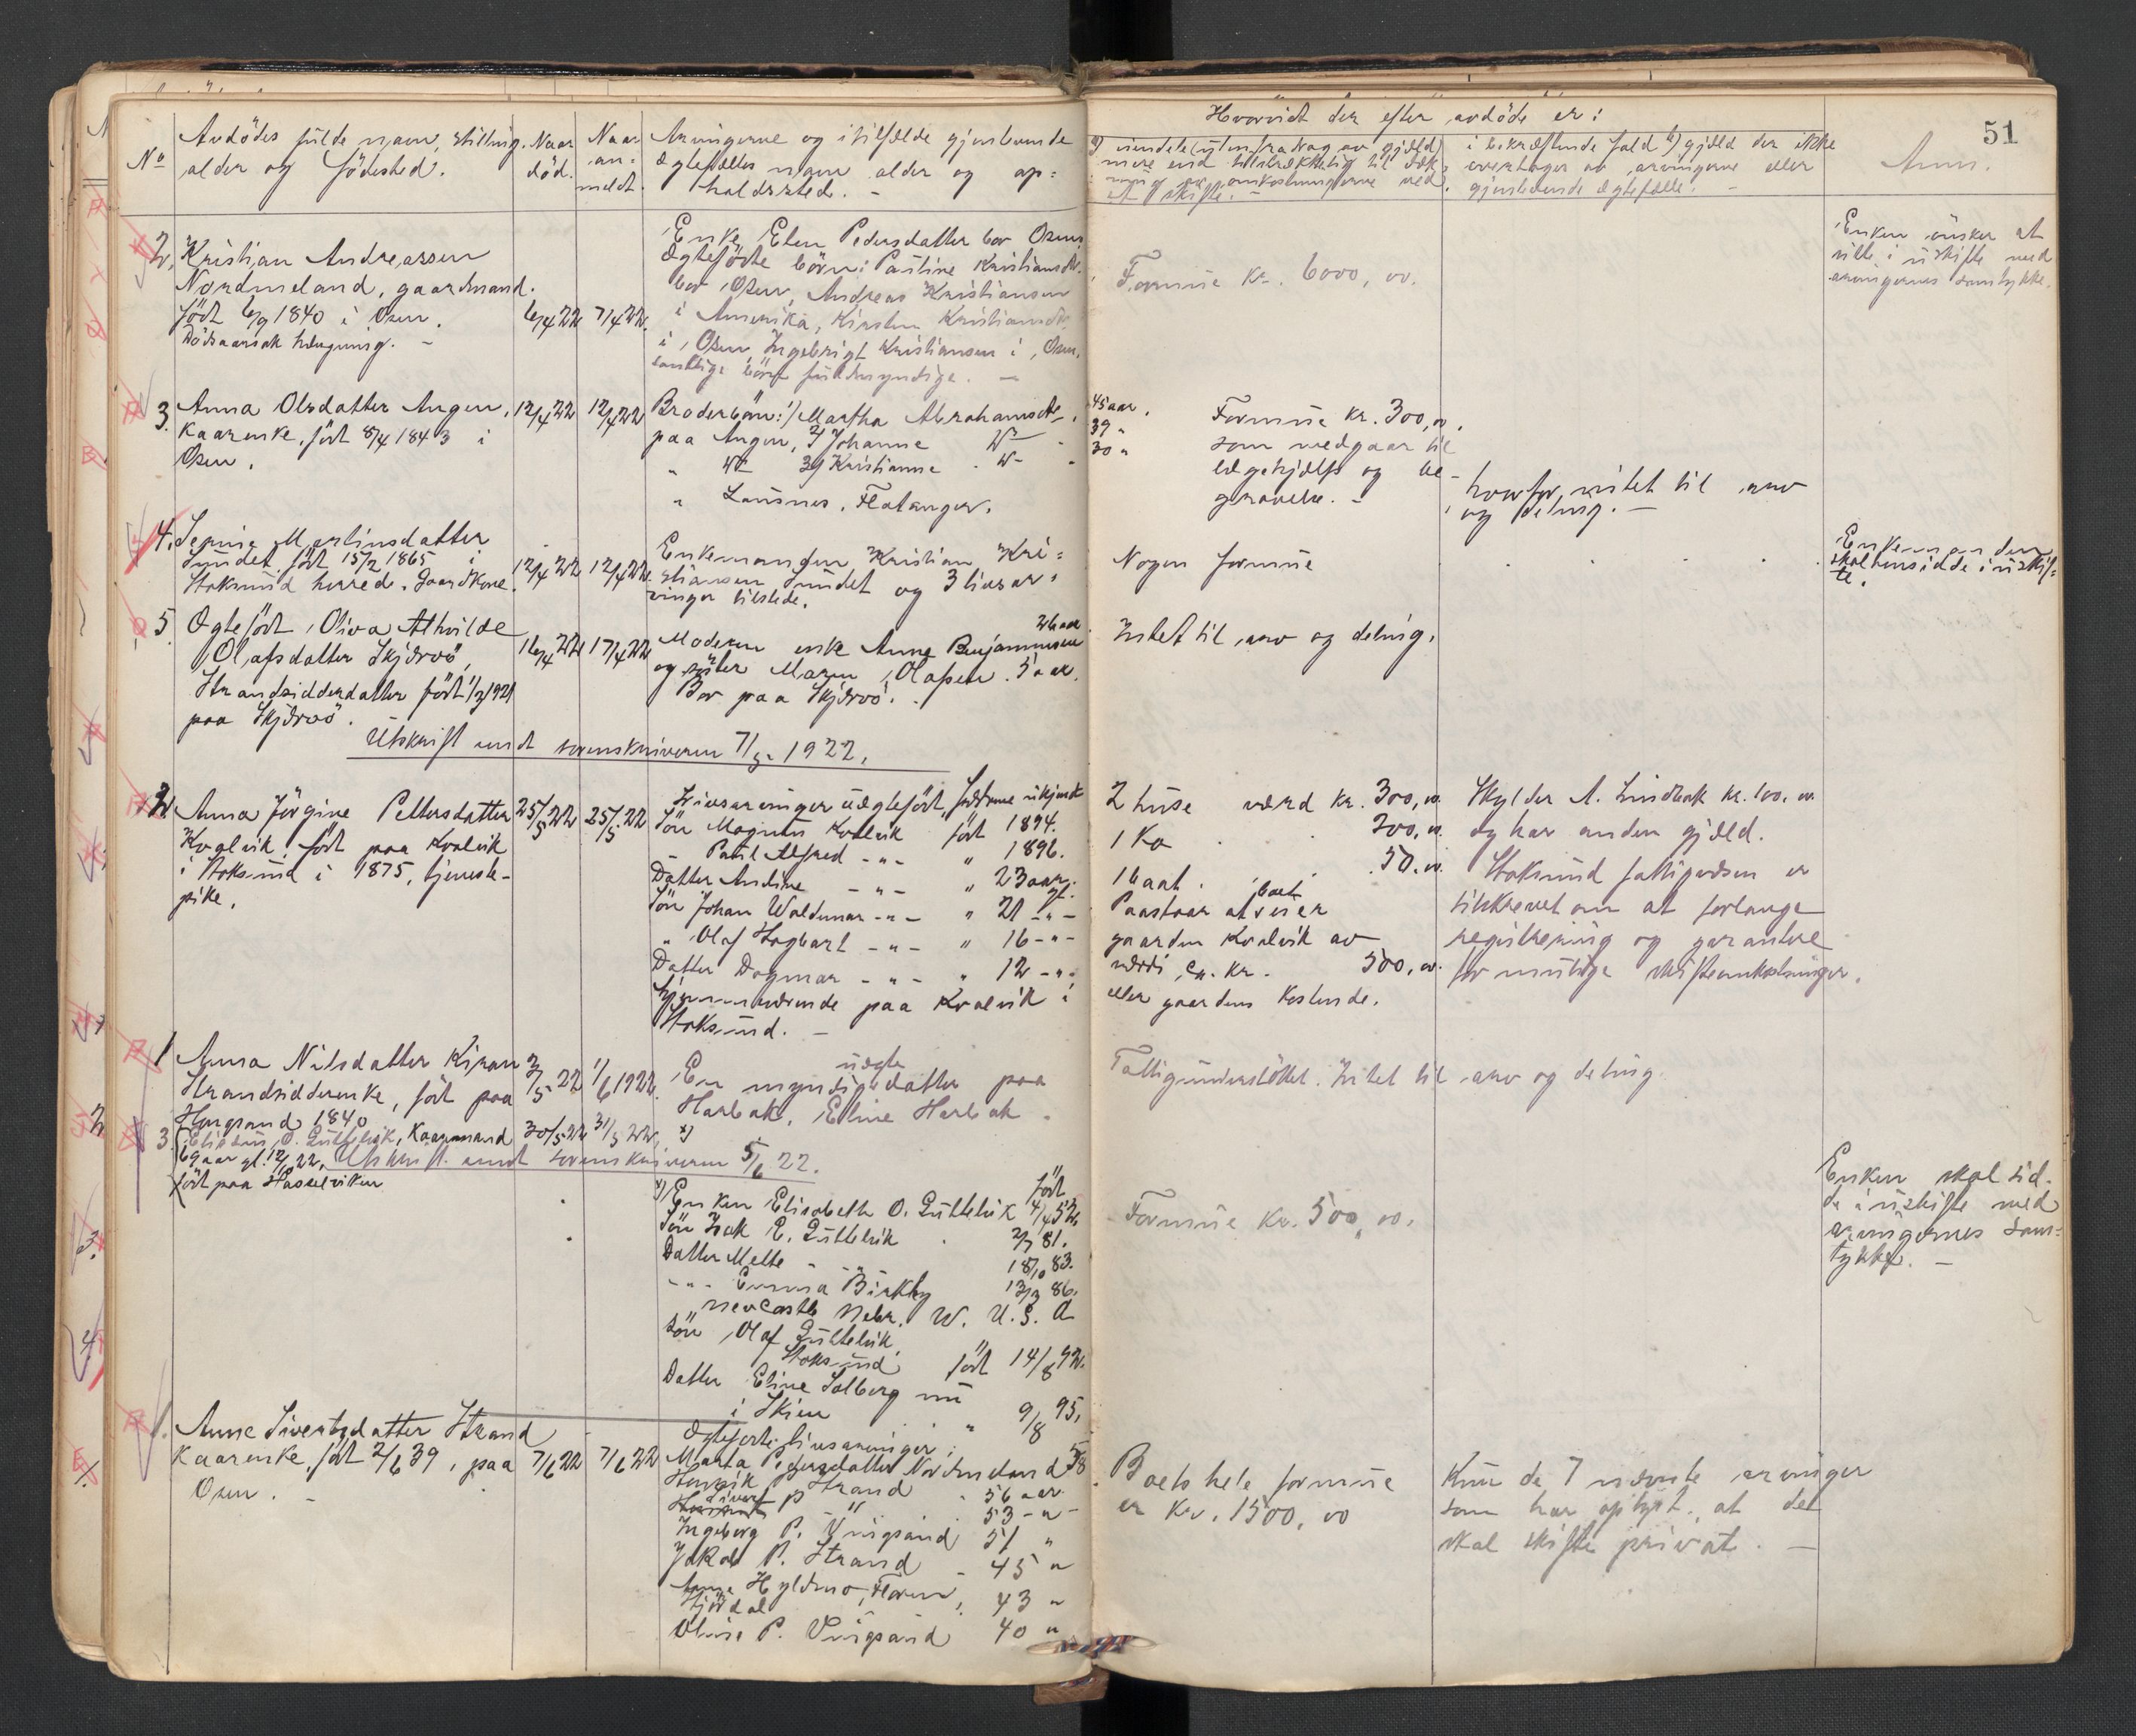 51
Hvorvidt der efter avdöde er:
No
Avdödes fulde navn, stilling,
alder og födested.
Naar
död.
Naar
an-
meldt.
Arvingerne og i tilfælde gjenlevende
ægtefælles navn alder og op-
holdssted. -
a) eiendele (uten fradrag av gjæld)
mere end tilstrækkelig til dæk-
ning av omkostningerne ved
et skifte. -
i bekræftende fald b) gjæld der ikke
overtages av arvingerne eller
gjenlevende ægtefælle. -
Anm.
2, Kristian Andreassen
Nordmeland, gaardmand.
född 6/9 1840 i Osen.
Dödsaarsak hængning. -
6/4 22 7/4 22.
Enke Elen Pedersdatter bor Osen,
Ægtefödte börn: Pauline Kristiansdtr.
bor Osen, Andreas Kristiansen
i Amerika, Kirsten Kristiansdtr.
i Osen, Ingebrigt Kristiansen i Osen,
samtlige börn fuldmyndige. -
Formue Kr. 6000,00.
Enken önsker at
sitte i uskifte med
arvingernes samtykke.
3. Anna Olsdatter Angen,
Kaarenke, född 8/4 1843 i
Osen.
12/4 22 12/4 22
Broderbörn: 1) Martha Abrahamsdtr.
paa Angen, 2) Johanna
3) Kristianna
" Lausnes, Flatanger.
45 aar.
39 "
30 "
Formue Kr. 300,00.
som medgaar til
lægehjælp og be-
gravelse. -
hvorfor intet til arv
og deling. -
4. Martinsdatter
Sundet, född 15/2 1865 i
Stoksund herred. Gaardkone.
12/4 22 12/4 22.
Enkemanden Kristian Kri-
stiansen Sundet og 3 livsar-
vinger tilstede.
Nogen formue
Enkemanden
skal hensidde i uskif-
te.
5. Ægteföd Oliva Athvilde
Olafsdatter Skjærvö,
Strandsidderdatter född 1921
paa Skjærvö.
16/4 22 17/4 22
26 aar
Moderen enke Anna Benjaminsen
og söster Maren Olafsen. 5 aar.
Bor paa Skjærvö.
Intet til arv og deling.
Utskrift sendt sorenskriveren 7/5 - 1922.
2. Anna Jörgine Pettersdatter
Kvalvik, född paa Kvalvik
i Stoksund i 1875, tjeneste-
pike.
25/5 22 25/5 22
Livsarvinger uægtefödt,
Sön Magnus Kvalvik född 1894.
- Paul Alfred - " - " 1896.
Datter Andine - " - " 23 aar.
Sön Johan Waldemar - " - " 21 - " -
" Olaf Hagbart - " - " 16 - " -
Datter Dagmar - " - " 12 - " -
Hjemmeværende paa Kvalvik i
Stoksund. -
2 huse værd Kr. 300,00.
1 Ko 200,00.
1 baat. 50,00.
Paastaar at boet eier
gaarden Kvalvik av
værdi ca. Kr. 500,00.
eller gaardens kostende.
Skylder A. Lindbak Kr. 100,00
og har anden gjæld.
Stoksund fattigvæsen er
tilskrevet om at forlange
registrering og garantere
for mulige skifteomkostninger.
1 Anna Nilsdatter Kiran
Strandsidderenke, född paa
Hongsand 1840
3/5 22 1/6 1922.
En myndig uægte datter paa
Harbak, Eline Harbak.
Fattigunderstöttet. Intet til arv og deling.
3. O. Lutteluk, Kaarmand
69 aar gl. 12/1 22.
född paa Hasselviken
30/5 22 31/5 22. x)
Utskrift sendt sorenskriveren 5/6 22.
x) Enken Elisabeth O. Lutteluk född 4/4 52.
Sön Isak E. Lutteluk 2/7 81.
Datter Mette - " - 18/10 83.
- " - Emma Birkby 13/3 86.
Newcastle Nebr. W. U. S. A
Sön Olaf Lutteluk,
Stoksund född 14/8 92.
Datter Eline Solberg nu
i Skien " 9/8 95.
Formue Kr. 500,00.
Enken skal sid-
de i uskifte med
arvingernes sam-
tykke. -
1. Anne Sivertsdatter Strand
Kaarenke, född 2/6 39, paa
Osen. -
7/6 22 7/6 22
Ægtefödte livsarvinger:
Marta Pedersdatter Nordmeland 58
Henrik P Strand 56 aar
Sivert P - " - 53 - " -
Ingeborg P. Vingsand 51 "
Jakob P. Strand - 45 "
Anna Hyldmo, Floren,
Stjördal 43 "
Oline P. Vingsand 40 "
Boets hele formue
er Kr. 1500,00
Kun de 7 nævnte arvinger
som har oplyst, at de
skal skifte privat. -
2
3.
4